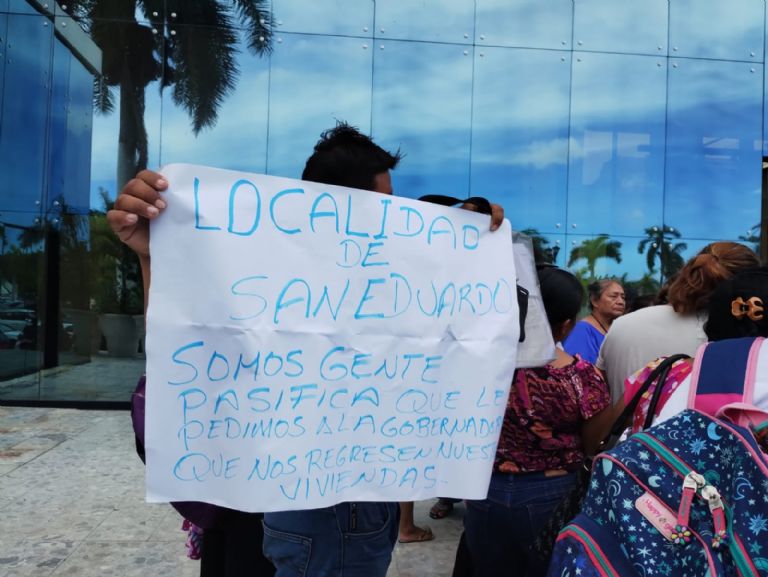 LOCALIDAD
DE
SAN EDUARDO
SOMOS GENTE
PASIFICA QUE LE
PEDIMOS A LA GOBERNADOR
QUE NOS REGRESEN NUEST
VIVIENDAS.
Happy